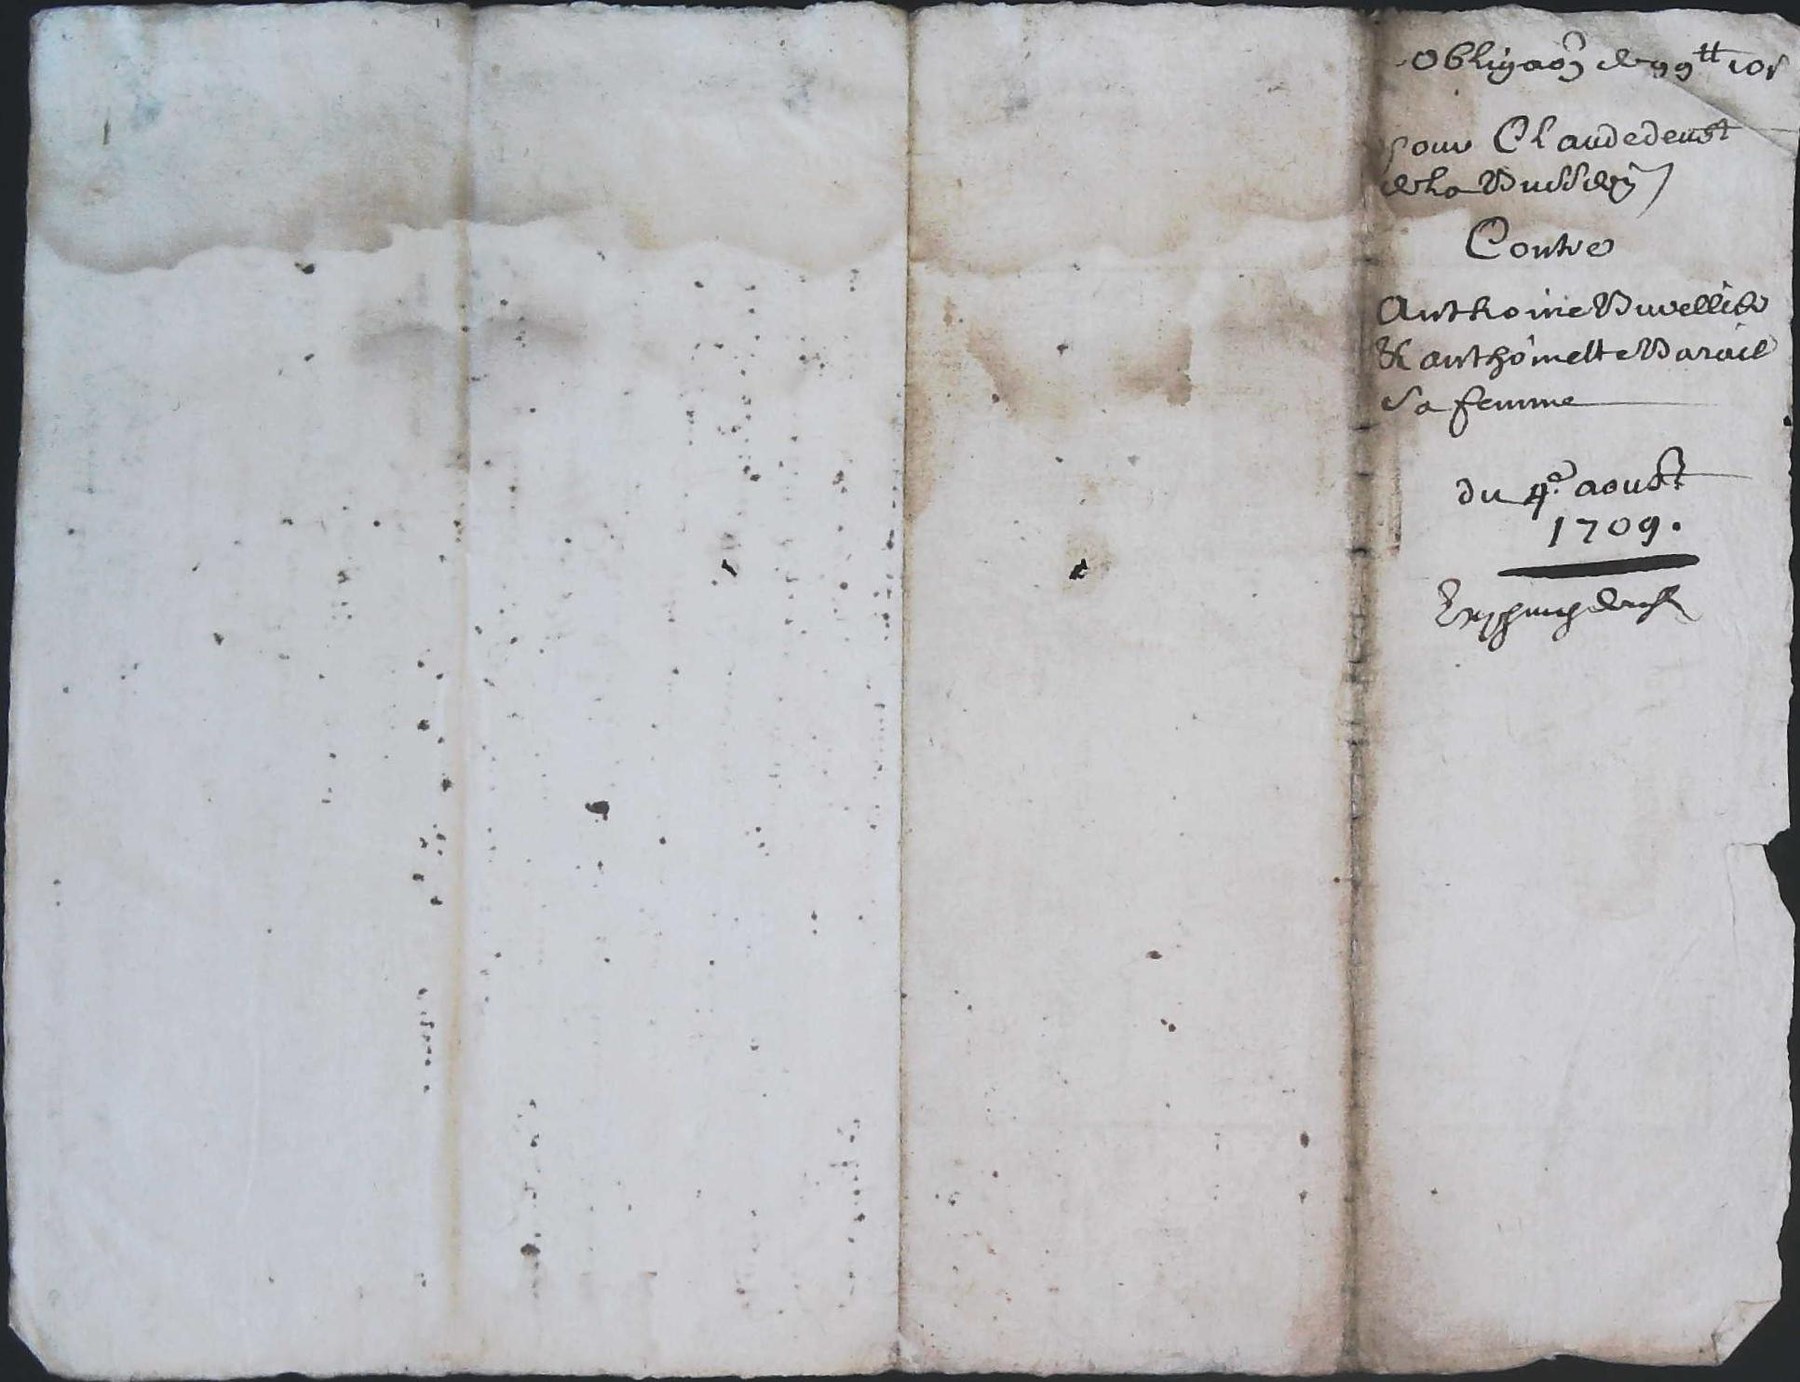 Obligaõn de 99tt 10s
pour Claude denst
de la
Contre
Anthoine Buvellie
& anthoinette Barail
sa femme
du 4e. aoust
1709.